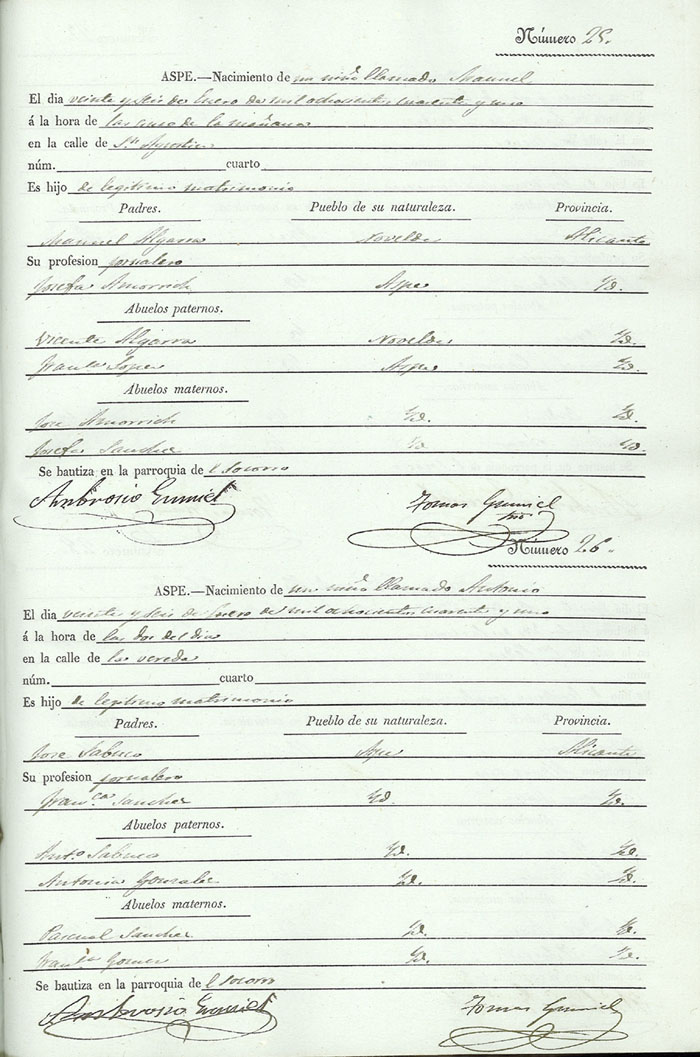 Número 25.
ASPE.—Nacimiento de un niño llamado Manuel
El dia veinte y seis de Enero de mil ochocientos cuarenta y uno
á la hora de las once de la mañana
en la calle de Sn. Agustin
núm. cuarto
Es hijo de legitimo matrimonio
Padres. Pueblo de su naturaleza. Provincia.
Manuel Algarra Novelda Alicante
Su profesion jornalero
Josefa Amorrich Aspe Yd.
Abuelos paternos.
Vicente Algarra Novelda Yd.
Franca. Lopez Aspe Yd.
Abuelos maternos.
Jose Amorrich Yd. Yd.
Josefa Sanchez Yd. Yd.
Se bautiza en la parroquia de l Socorro
Ambrosio Gumiel Tomas Gumiel
Número 26.
ASPE.—Nacimiento de un niño llamado Antonio
El dia veinte y seis de Enero de mil ochocientos cuarenta y uno
á la hora de las dos del dia
en la calle de la vereda
núm. cuarto
Es hijo de legitimo matrimonio
Padres. Pueblo de su naturaleza. Provincia.
Jose Sabuco Aspe Alicante
Su profesion jornalero
Franca. Sanchez Yd. Yd.
Abuelos paternos.
Anto. Sabuco Yd. Yd.
Antonia Gonzalez Yd. Yd.
Abuelos maternos.
Pascual Sanchez Yd. Yd.
Franca. Gomez Yd. Yd.
Se bautiza en la parroquia de l Socorro
Ambrosio Gumiel Tomas Gumiel